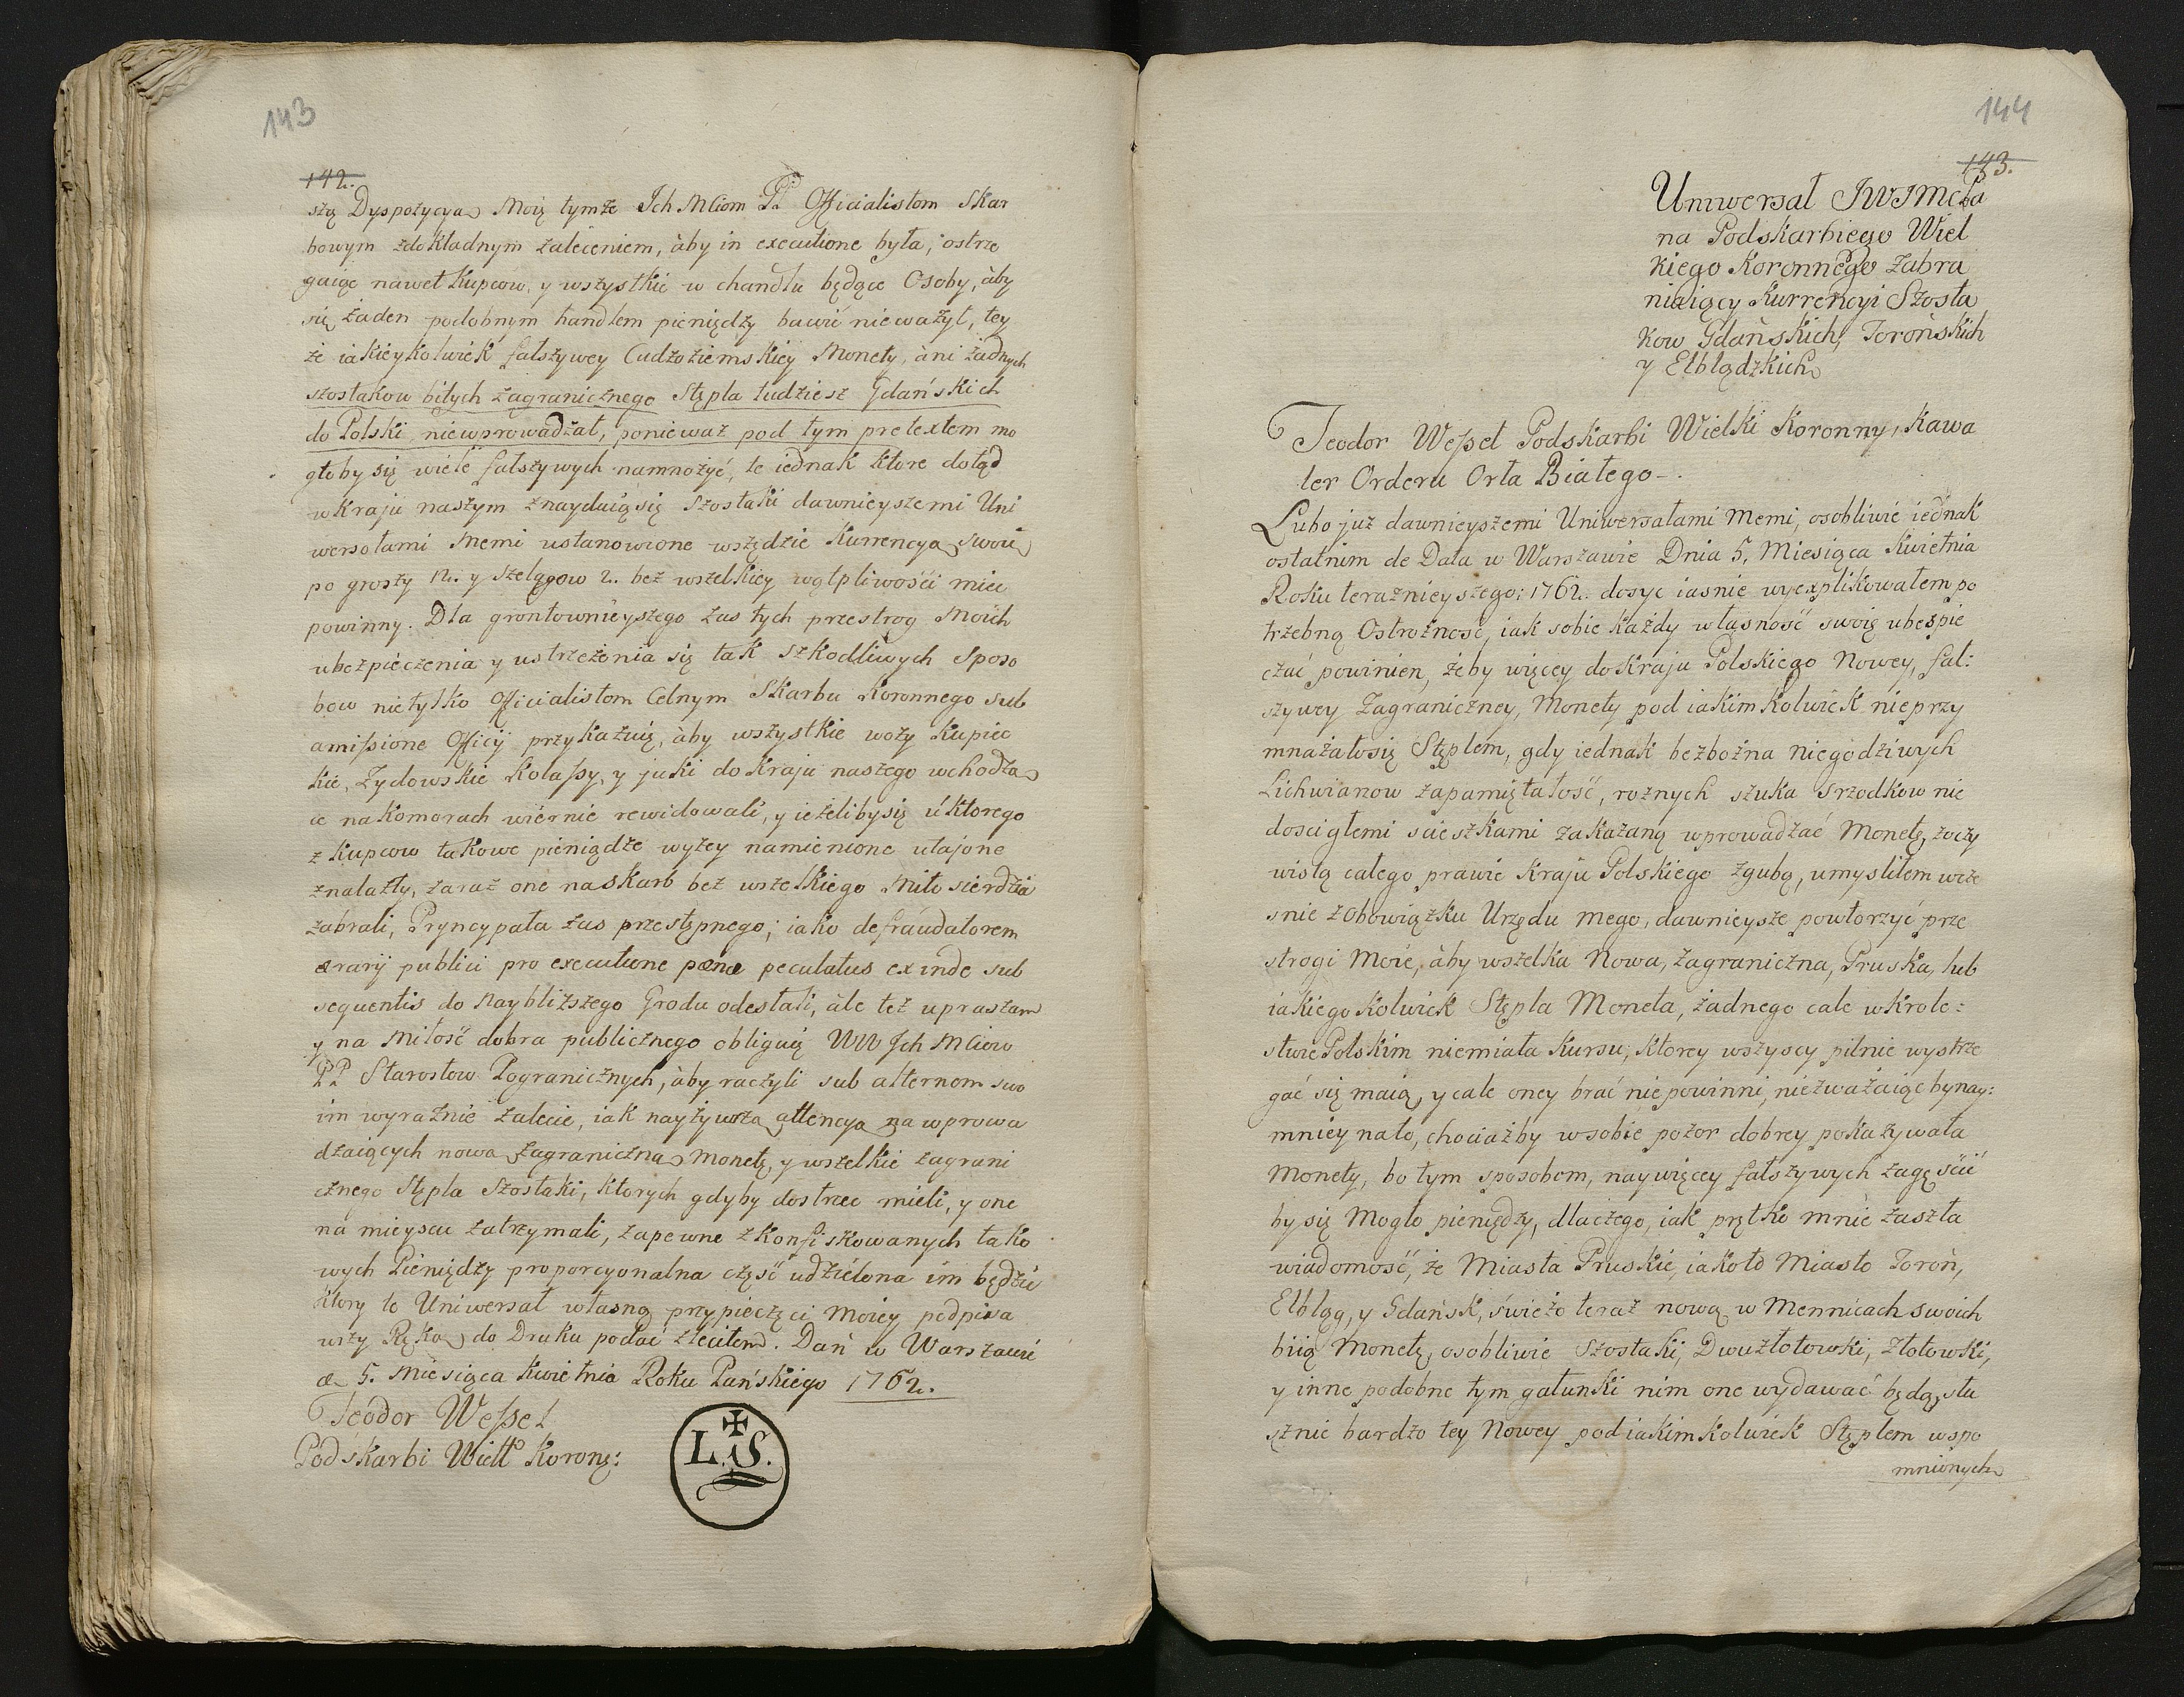 143
142.
szą Dyspozycyą Moię tymże Ich Mciom PP. Officialistom Skar
bowym zdokładnym zaleceniem, àby in executione była, ostrze
gaiąc nawet Kupcow, y wszystkie w chandlu będące Osoby, àby
się żaden podobnym handlem pieniędzy bawić nieważył, tey
że iakieykolwiek fałszywey Cudzoziemskiey Monety, àni żadnych
szostakow bitych zagranicznego Stępla tudziesz Gdańskich
do Polski niewprowadzał, ponieważ pod tym pretextem mo
głoby się wiele fałszywych namnożyć, te iednak ktore dotąd
w Kraju naszym znayduią się Szostaki dawnieyszemi Uni
wersałami Memi ustanowione wszędzie Kurrencyą swoią
po groszy 12. y szelągow 2. bez wszelkiey wątpliwości mieć
powinny. Dla grontownieyszego zas tych przestrog Moich
ubezpieczenia y ustrzeżenia się tak szkodliwych Sposo
bow nietylko Officialistom Celnym Skarbu Koronnego sub
amissione Officij przykazuię, àby wszystkie wozy Kupiec
kie, Zydowskie Kolassy, y juki do Kraju naszego wchodzą
ce na Komorach wiernie rewidowali, y ieżeliby się u ktorego
z Kupcow takowe pieniądze wyżey namienione utajone
znalazły, zaraz one na skarb bez wszelkiego Miłosierdzia
zabrali, Pryncypała zas przestępnego, iako defraudatorem
ærarij publici pro executione pœnæ peculatus exinde sub
sequentis do Naybliższego Grodu odesłali, àle też upraszam
y na Miłość dobra publicznego obliguię WW Ich Mciow
PP Starostow Pogranicznych, àby raczyli sub alternom swo
im wyraźnie zalecić, iak nayżywszą attencyą na wprowa
dzaiących nową zagraniczną Monetę, y wszelkie zagrani
cznego Stępla Szostaki, ktorych gdyby dostrzec mieli, y one
na mieyscu zatrzymali, zapewne z Konfiskowanych tako
wych Pieniędzy proporcyonalna część udzielona im będzie
ktory to Uniwersał własną przy pieczęci Moiey podpisa
wszy Ręką do Druku podać zleciłem. Dań w Warszawie
5. Miesiąca Kwietnia Roku Pańskiego 1762.
Teodor Wessel
Podskarbi Wielk Koronę:
L. S.
144
143.
Uniwersał JWJMcPa
na Podskarbiego Wiel
kiego Koronnego Zabra
niaiący Kurrencyi Szosta
kow Gdańskich, Torońskich
y Elblądzkich
Teodor Wessel Podskarbi Wielki Koronny, Kawa
ler Orderu Orła Białego -.
Lubo już dawnieyszemi Uniwersałami Memi, osobliwie iednak
ostatnim de Data w Warszawie Dnia 5. Miesiąca Kwietnia
Roku teraznieyszego: 1762. dosyc iasnie wyexplikowałem po
trzebną Ostrożność, iak sobie Każdy własność swoię ubespie
czać powinien, żeby więcey do Kraju Polskiego Nowey, fał:
szywey Zagraniczney, Monety pod iakimkolwiek nieprzy
mnażało się Stęplem, gdy iednak bezbożna niegodziwych
Lichwianow zapamiętałość, rożnych szuka srzodkow nie
doscigłemi scieszkami zakazaną wprowadzać Monetę, zoczy
wistą całego prawie Kraju Polskiego zgubą, umyslilem wcze
snie z Obowiązku Urzędu mego, dawnieysze powtorzyć prze
strogi Moie, àby wszelka Nowa, zagraniczna, Pruska, lub
iakiegokolwiek Stępla Moneta, żadnego cale w Krole:
stwie Polskim niemiała Kursu, Ktorey wszyscy pilnie wystrze
gać się maią, y cale oney brać niepowinni, niezważaiąc bynay:
mniey na to, chociażby w sobie pozor dobrey pokazywała
Monety, bo tym sposobem, naywięcey fałszywych zagęścić
by się Mogło pieniędzy, dlaczego, iak prętko mnie zaszła
wiadomość, że Miasta Pruskie, iako to Miasto Toroń,
Elbląg, y Gdańsk, świeżo teraz nową w Mennicach swoich
biią Monetę, osobliwie Szostaki, Dwuzłotowki, Złotowki,
y inne podobne tym gatunki nim one wydawać będą, słu
sznie bardzo tey Nowey pod iakimkolwiek Stęplem wspo
mnionych